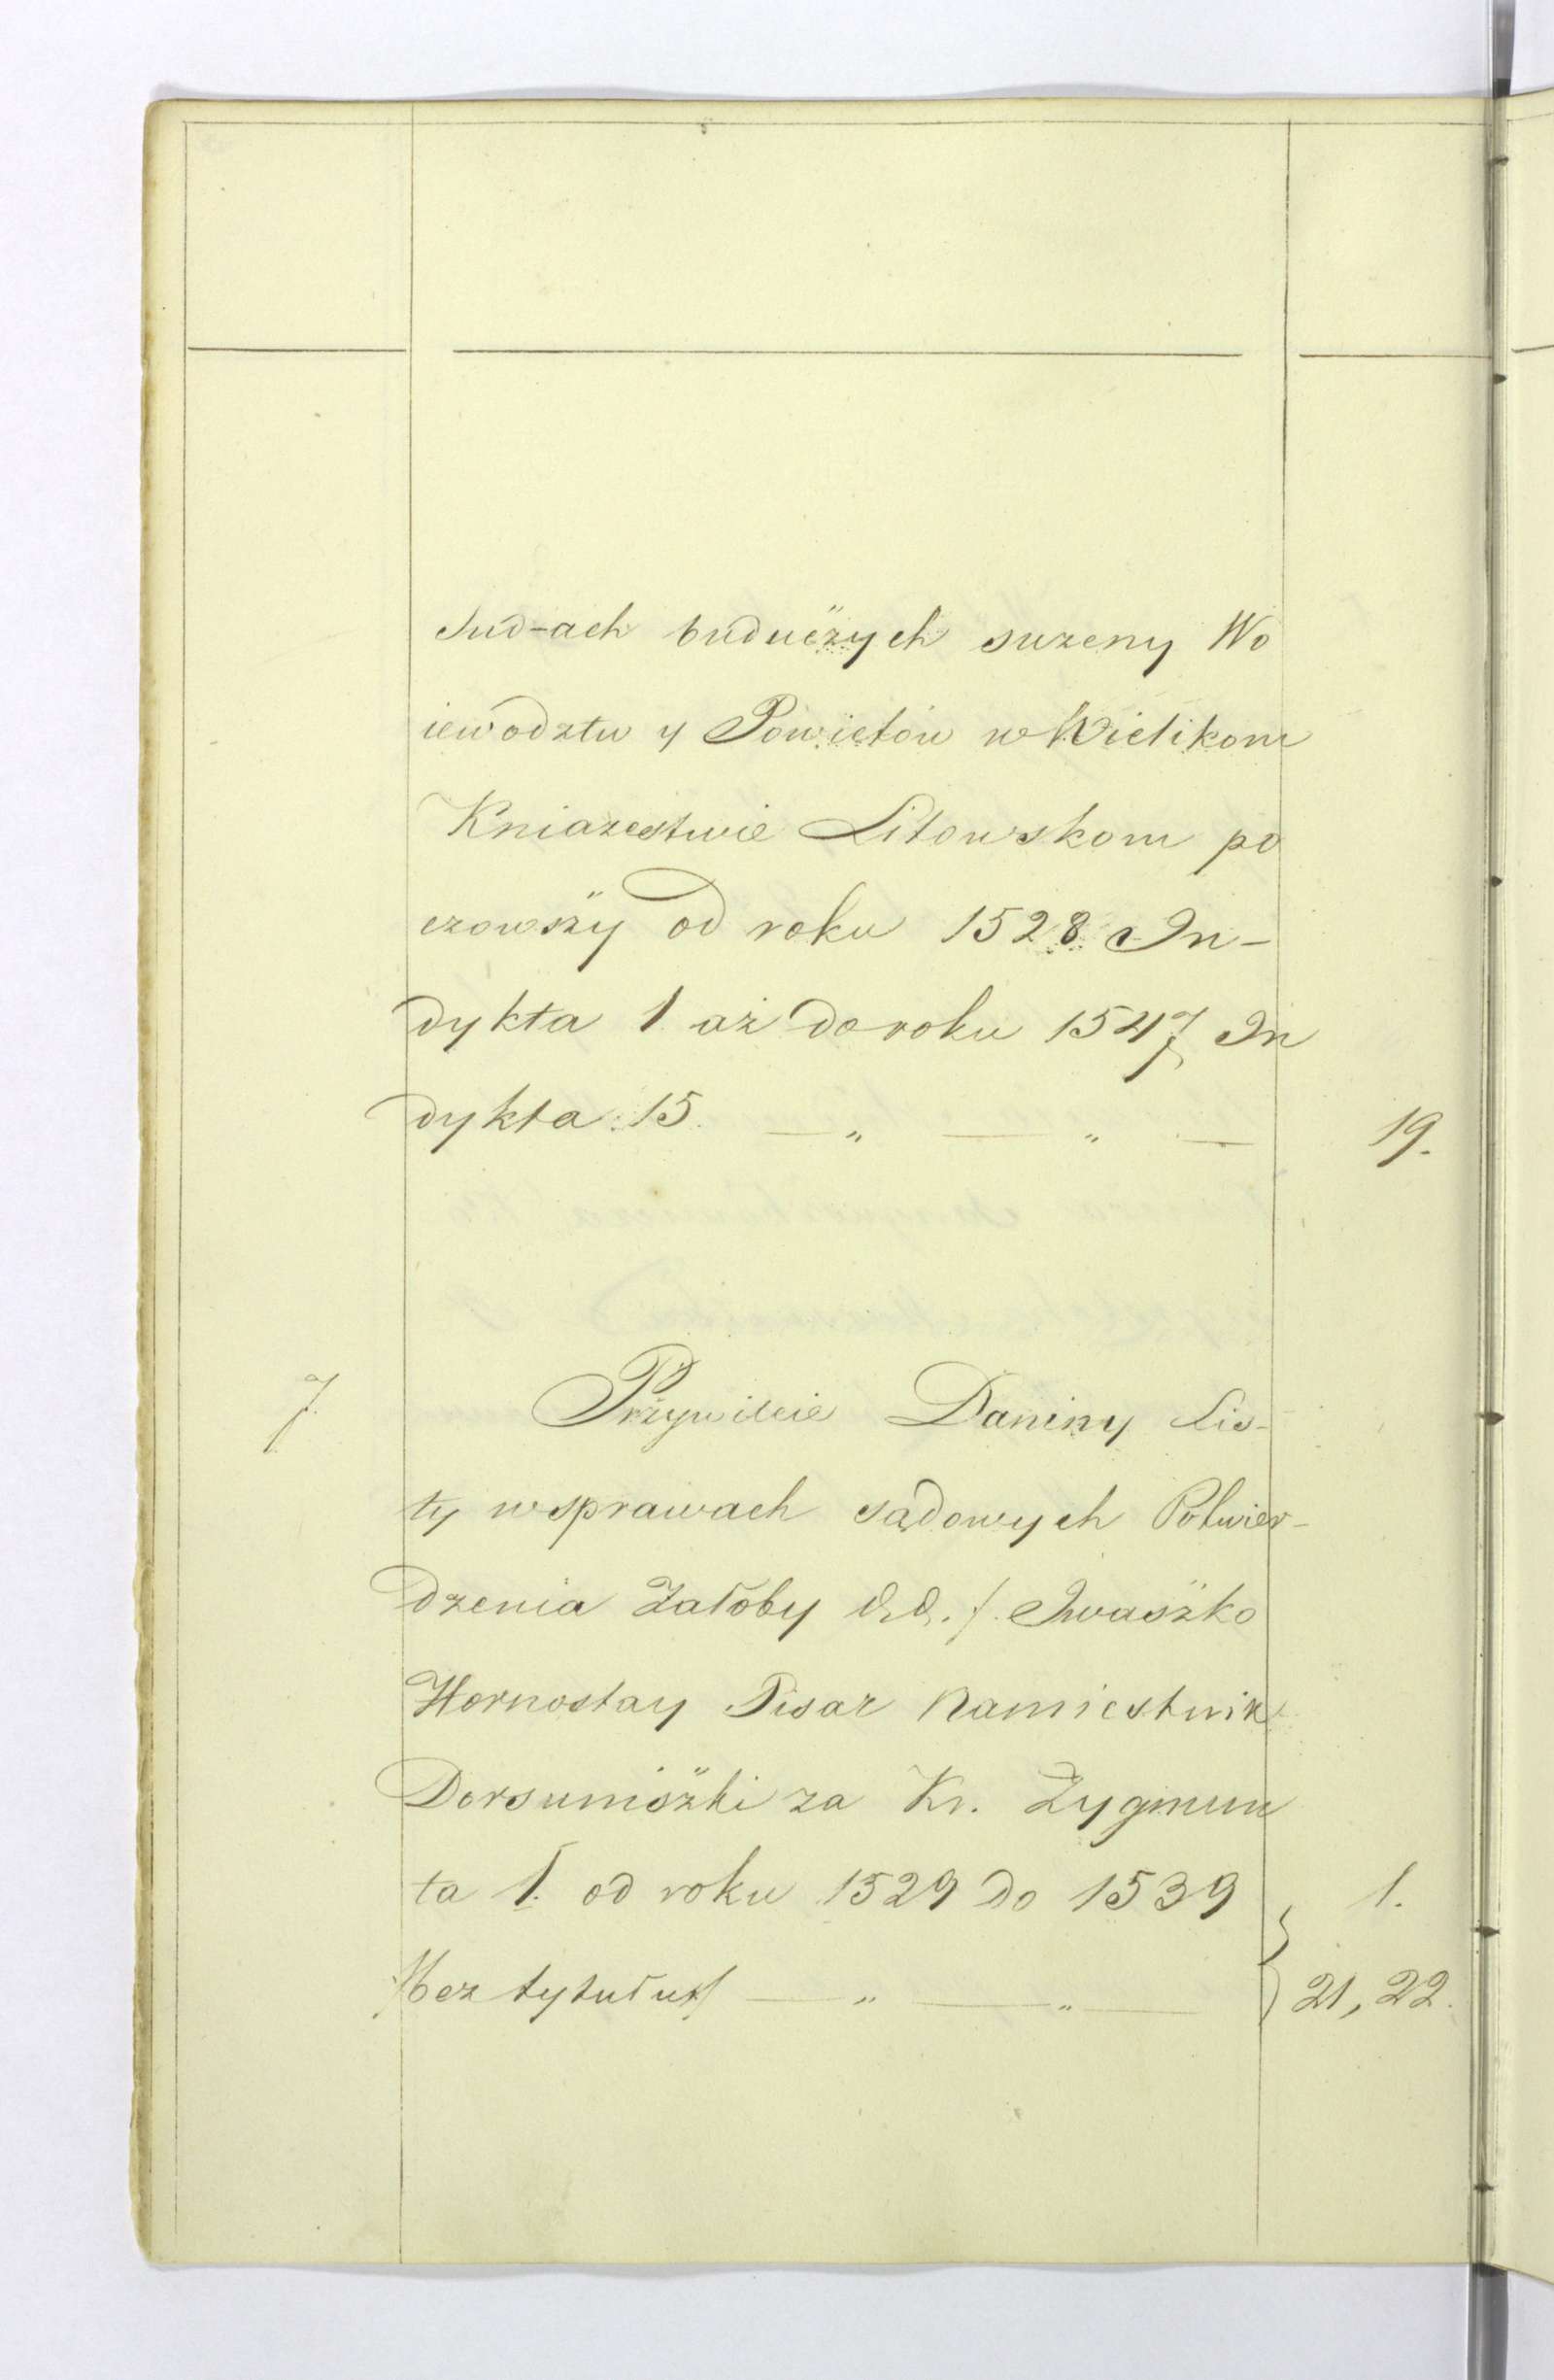 Sud-ach buduczych suzeny Wo
iewodztw y Powietow w Wielikom
Kniazestwie Litowskom po
czowszy od roku 1528 In-
dykta 1 aż do roku 1547 In
dykta 15. — „ — „ — 19.
7. Przywileie Daniny Lis-
ty w sprawach sądowych Potwier-
dzenia Załoby &. &. /. Iwaszko
Hornostay Pisar Namiestnik
Dorsuniszki za Kr. Zygmun
ta 1. od roku 1529 do 1539 } 1.
/bez tytułu/ — „ — „ — } 21, 22.